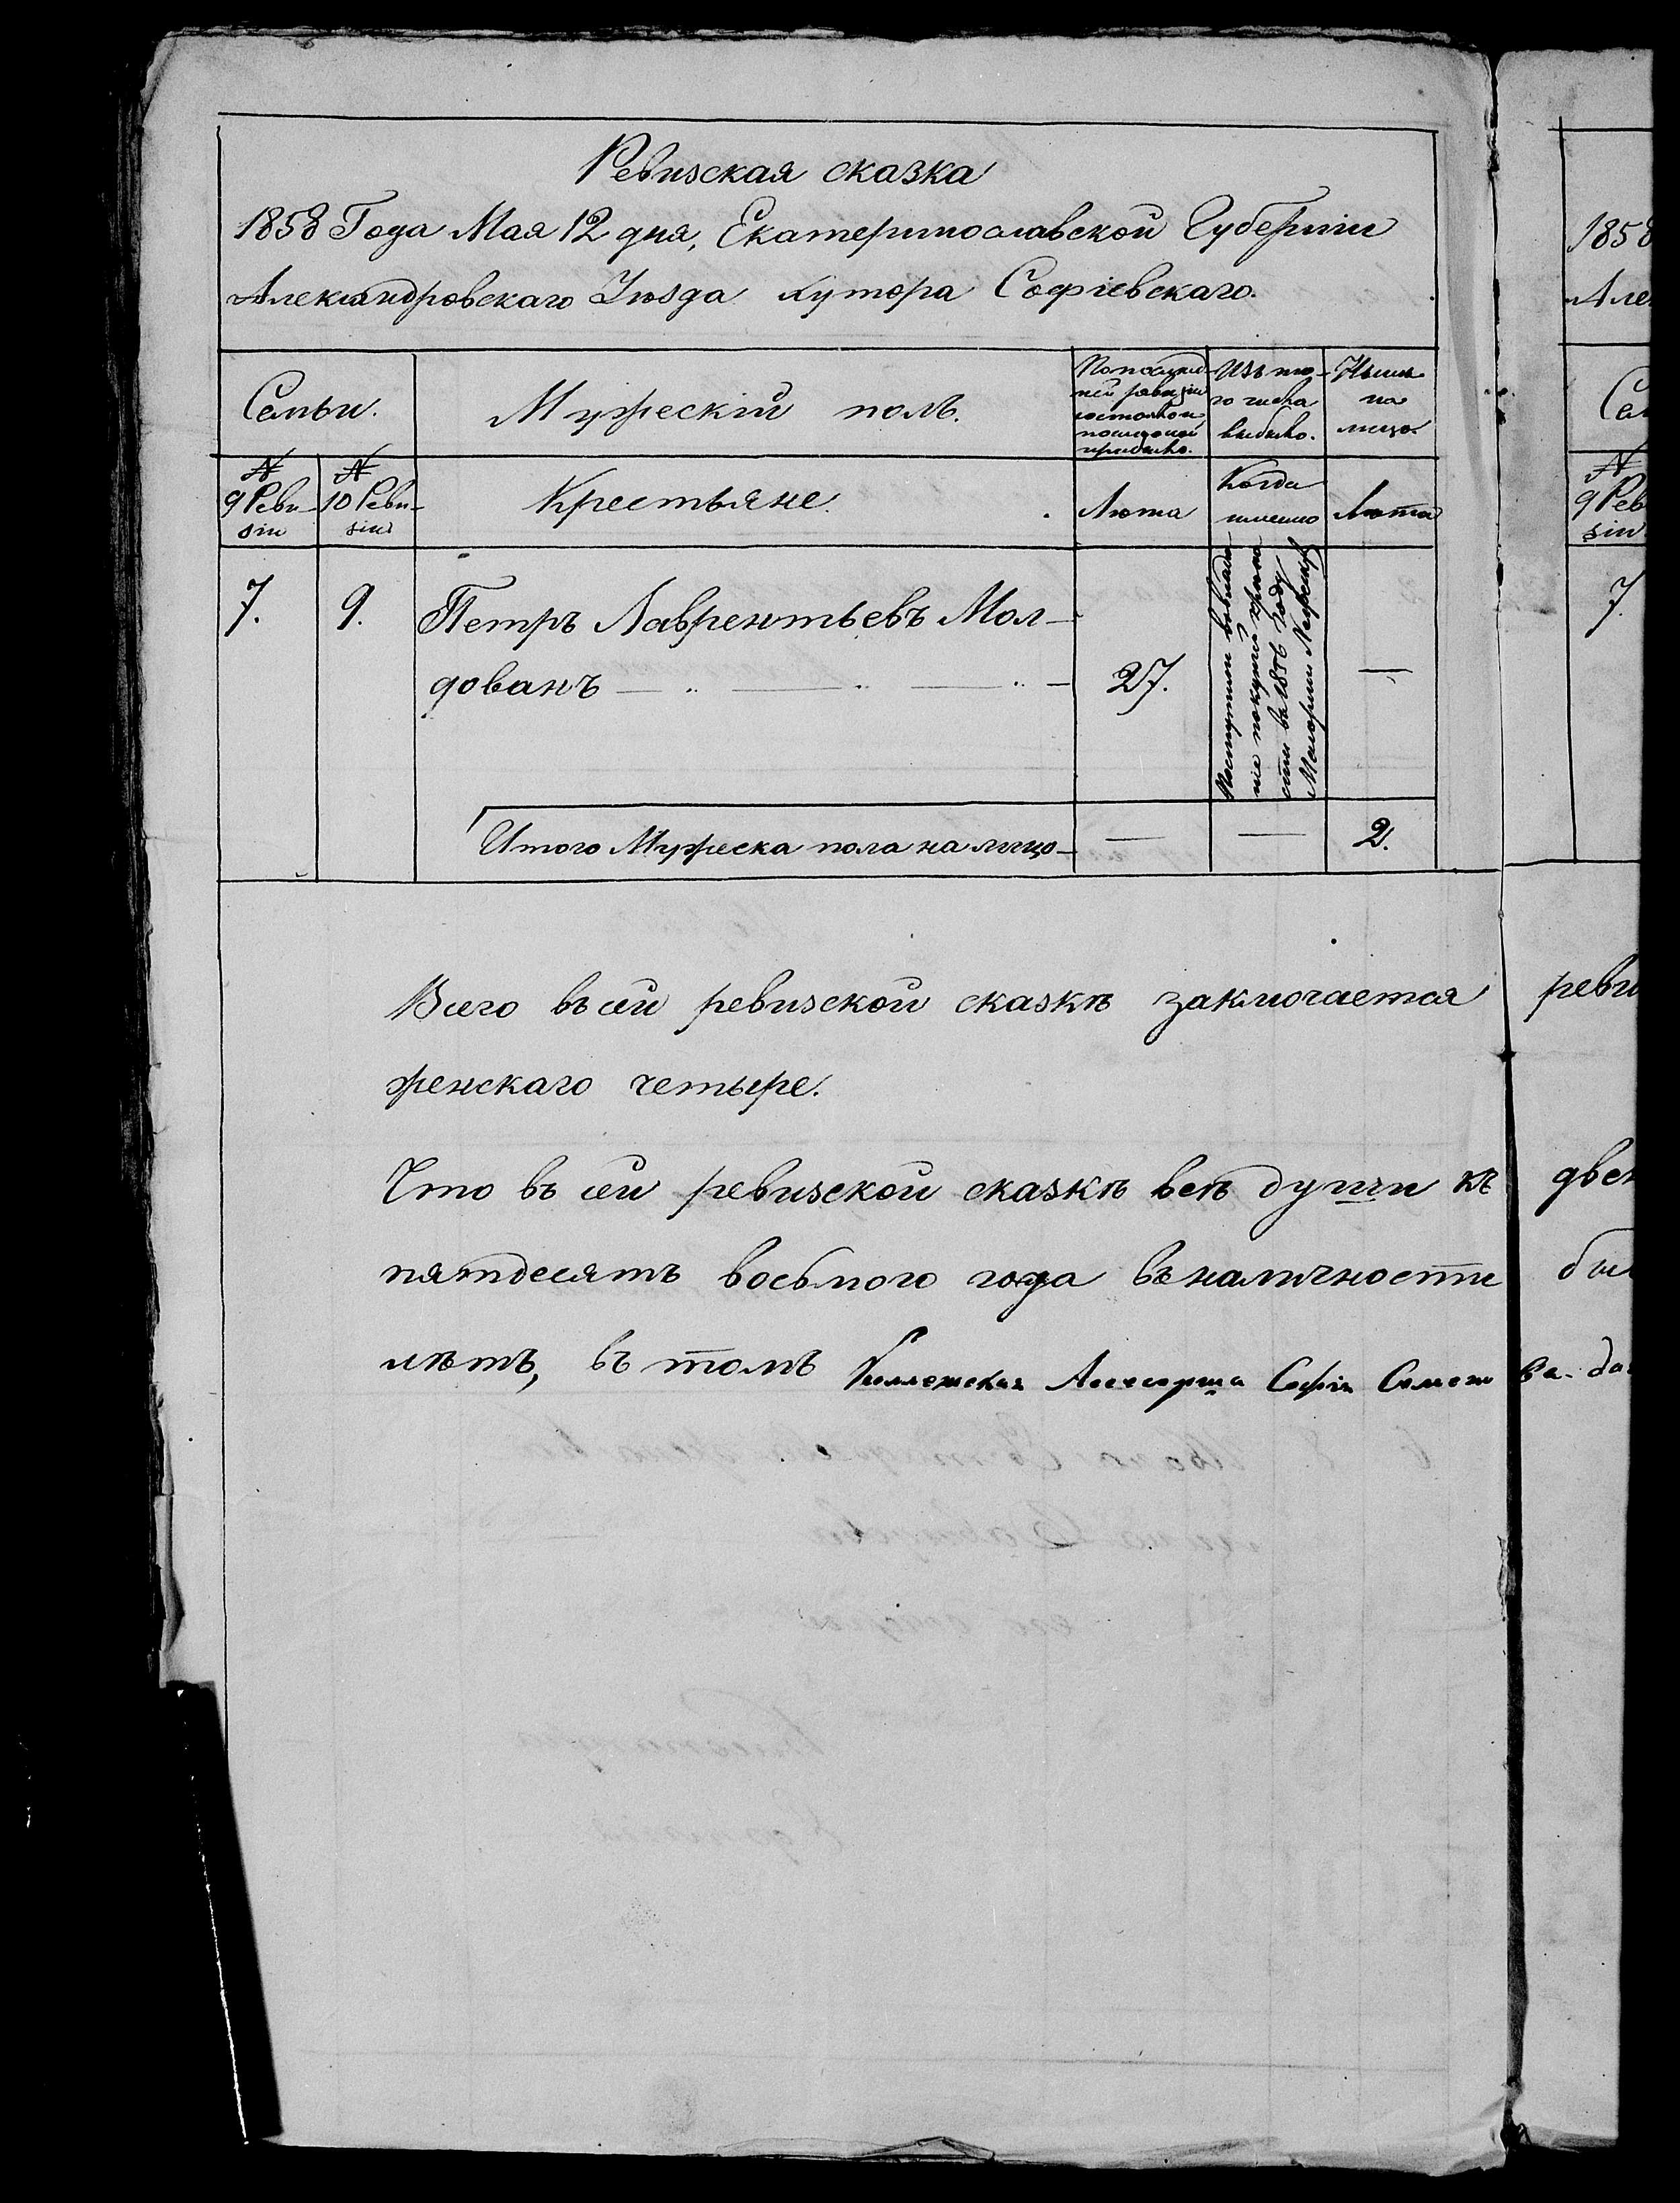 Ревизская сказка
1858 Года Мая 12 дня, Екатеринославской Губерніи
Александровскаго Уѣзда хутора Софіевскаго.
Семьи.
Мужескій полъ.
По послѣд-
ней ревизіи
состояло и
послѣ оной
прибыло.
Изъ то-
го числа
выбыло.
Нынѣ
на
лицо.
№
9 Реви-
зіи
№
10 Реви-
зіи
Крестьяне.
Лѣта
Когда
именно
Лѣта
7.
9.
Петръ Лаврентьевъ Мол-
дованъ
27.
Поступил вовладе-
ніе покупкой
въ 1856 году
—
Итого Мужеска пола на лицо —
—
—
2.
Всего въ сей ревизской сказкѣ заключается
женскаго четыре.
Что въ сей ревизской сказкѣ всѣ души къ
пятдесятъ восьмого года въ наличности
лѣтъ, въ томъ Коллежская Асесорша Софія
1858
Але
Се
№
9 Рев
зіи
7.
реви
двен
был